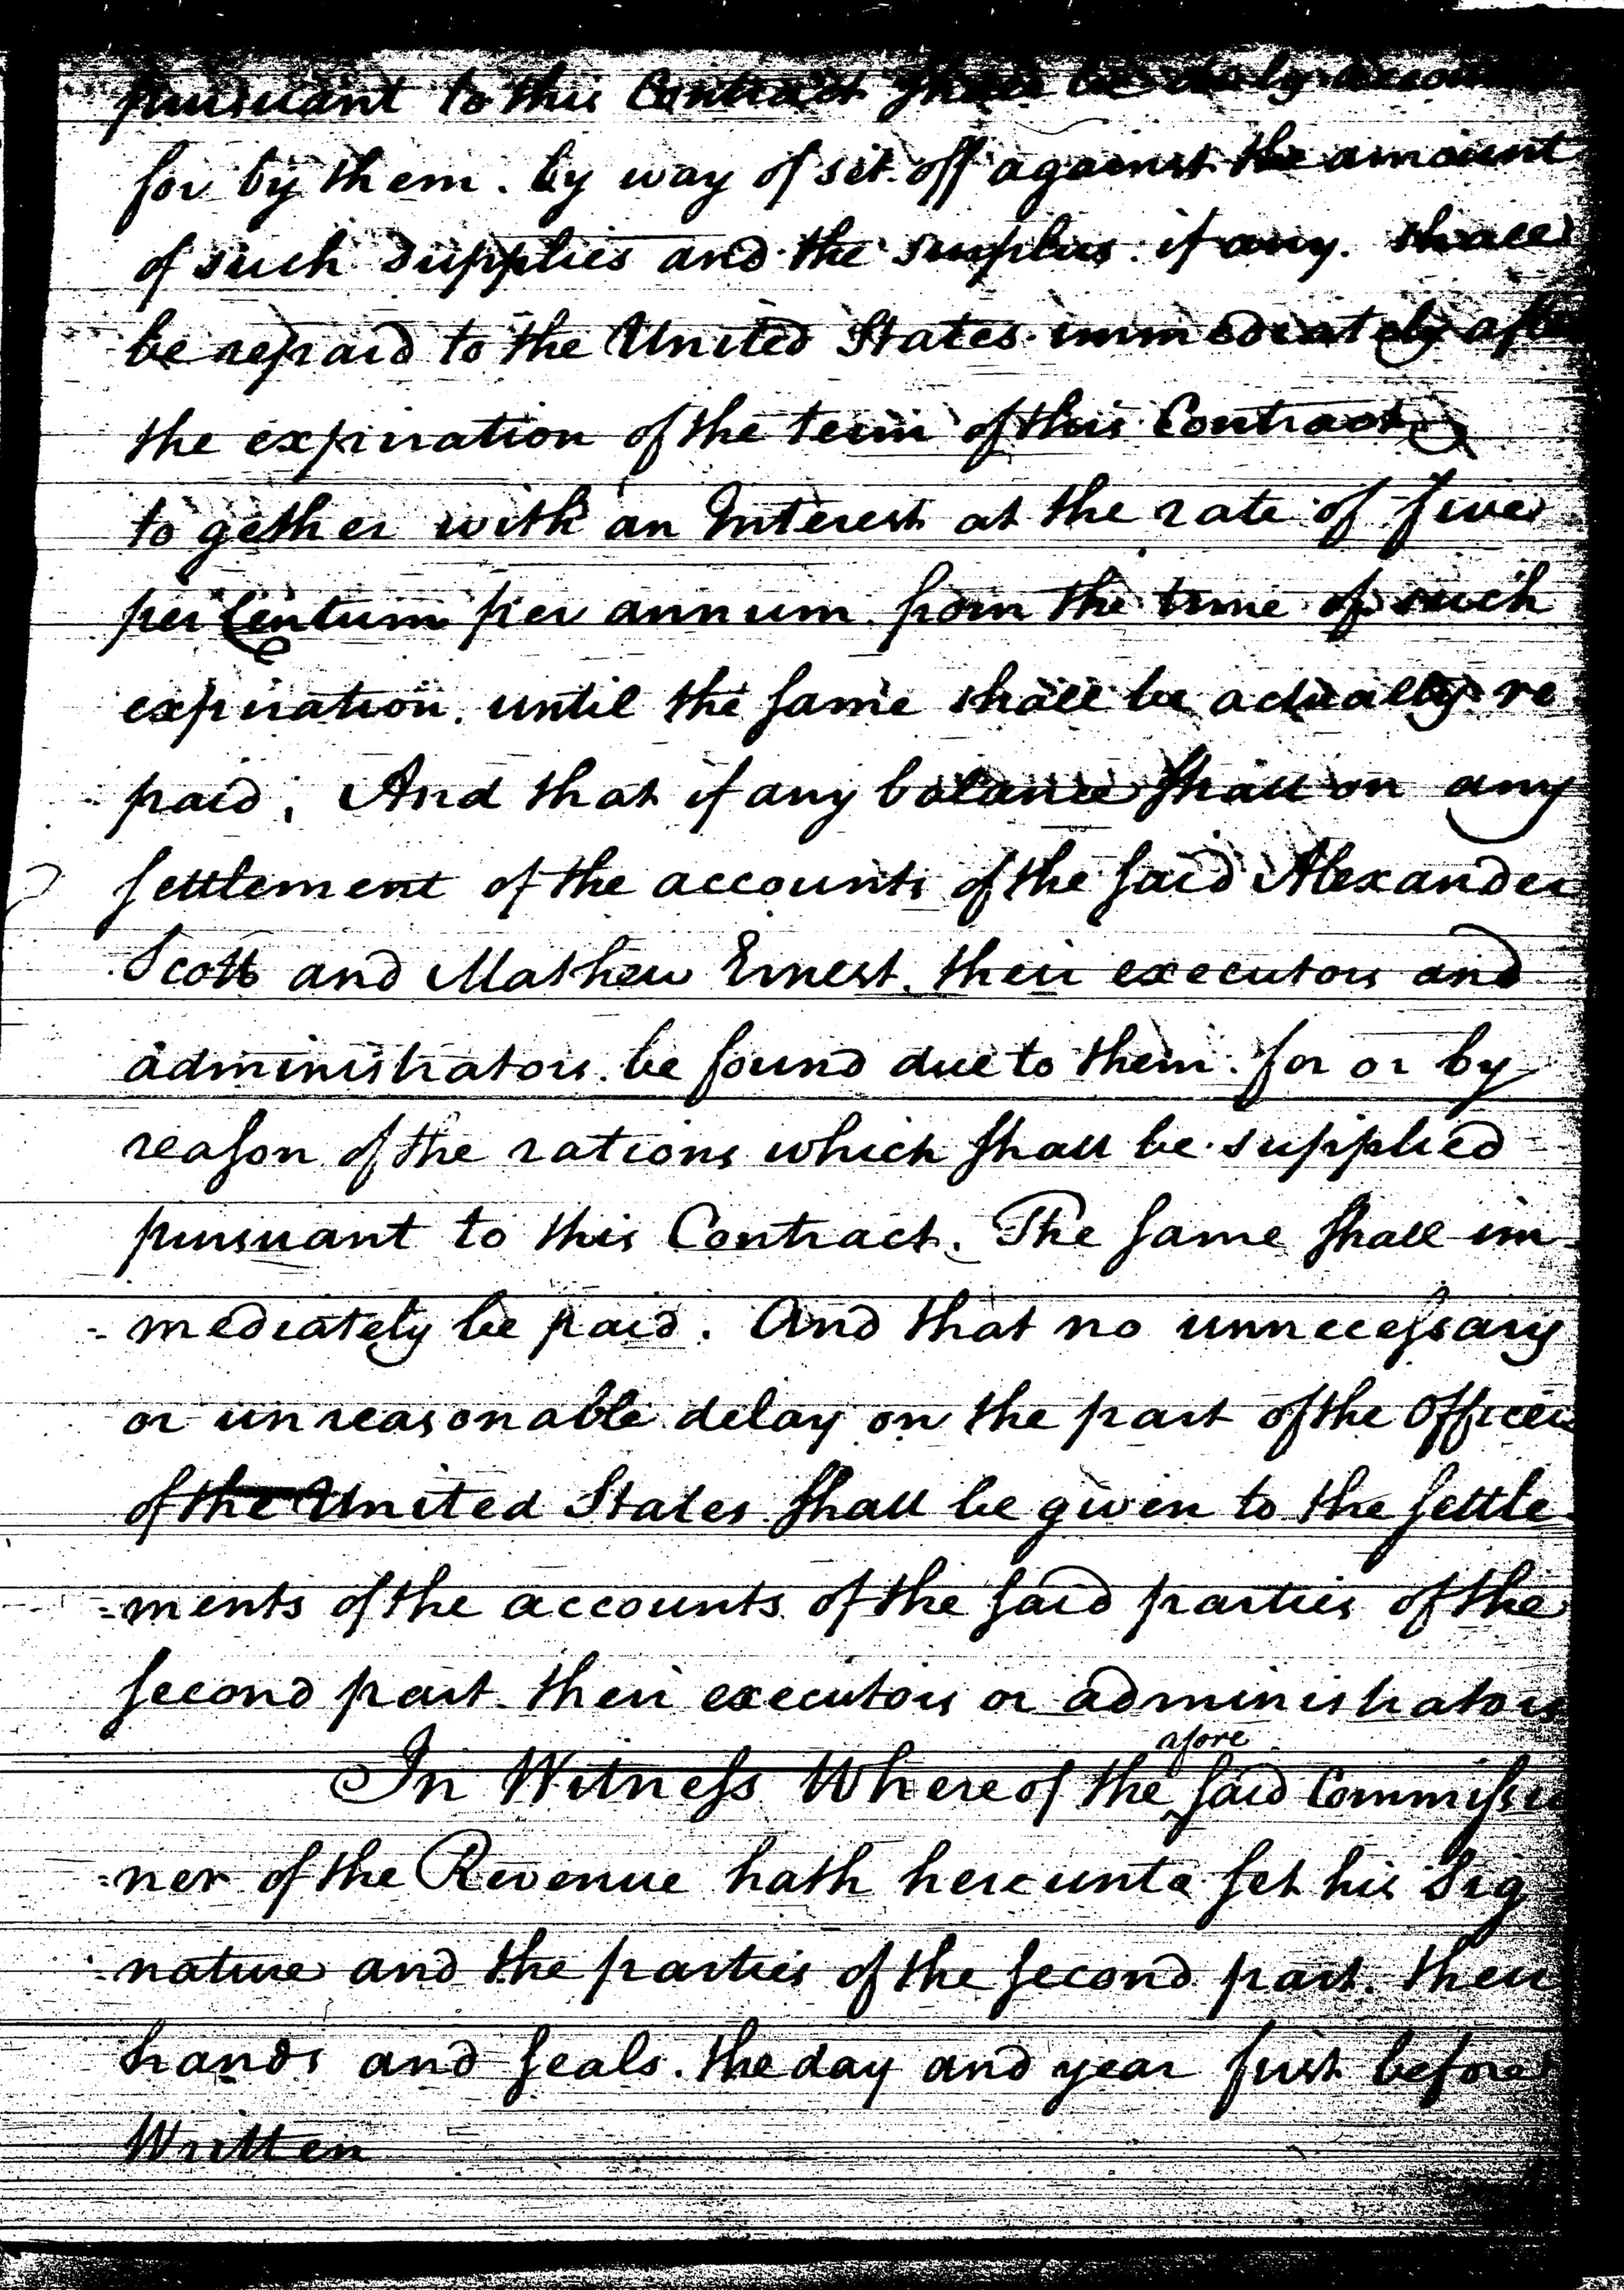 pursuant to this Contract shall be duly accoun
for by them. by way of set off against the amount
of such supplies and the surplus. if any. shall
be repaid to the United States immediately afte
the expiration of the term of this Contract
to gether with an Interest at the rate of five
per Centum per annum from the time of such
expiration. until the same shall be actually re
paid, And that if any balance shall on any
settlement of the accounts of the said Alexander
Scott and Mathew Ernest. their executors and
administrators. be found due to them. for or by
reason of the rations which shall be supplied
pursuant to this Contract. The same shall im
-mediately be paid. And that no unnecessary
or unreasonable delay on the part of the Officers
of the United States shall be given to the settle
=ments of the accounts of the said parties of the
second part. their executors or administrators
afore
In Witness Whereof the said Commissio
=ner of the Revenue hath hereunto set his Sig
=nature and the parties of the second part. their
hands and seals. the day and year first before
Written